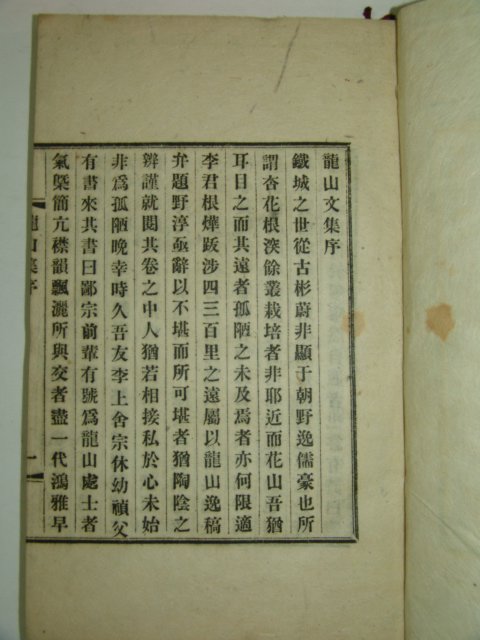 龍山文集序
鐵城之世從古彬蔚非顯于朝野逸儒豪也所
謂杏花根深餘叢栽培者非耶近而花山吾猶
耳目之而其遠者孤陋之未及爲者亦何限適
李君根燁跋涉四三百里之遠屬以龍山逸稿
弁題野淳亟辭以不堪而所可堪者猶陶陰之
辨謹就閱其卷之中人猶若相接私於心未始
非爲孤陋晚幸時久吾友李上舍宗休幼禎父
有書來其書曰鄙宗前輩有號爲龍山處士者
氣槩簡亢襟韻飄灑所與交者盡一代鴻雅早
龍山集序 一